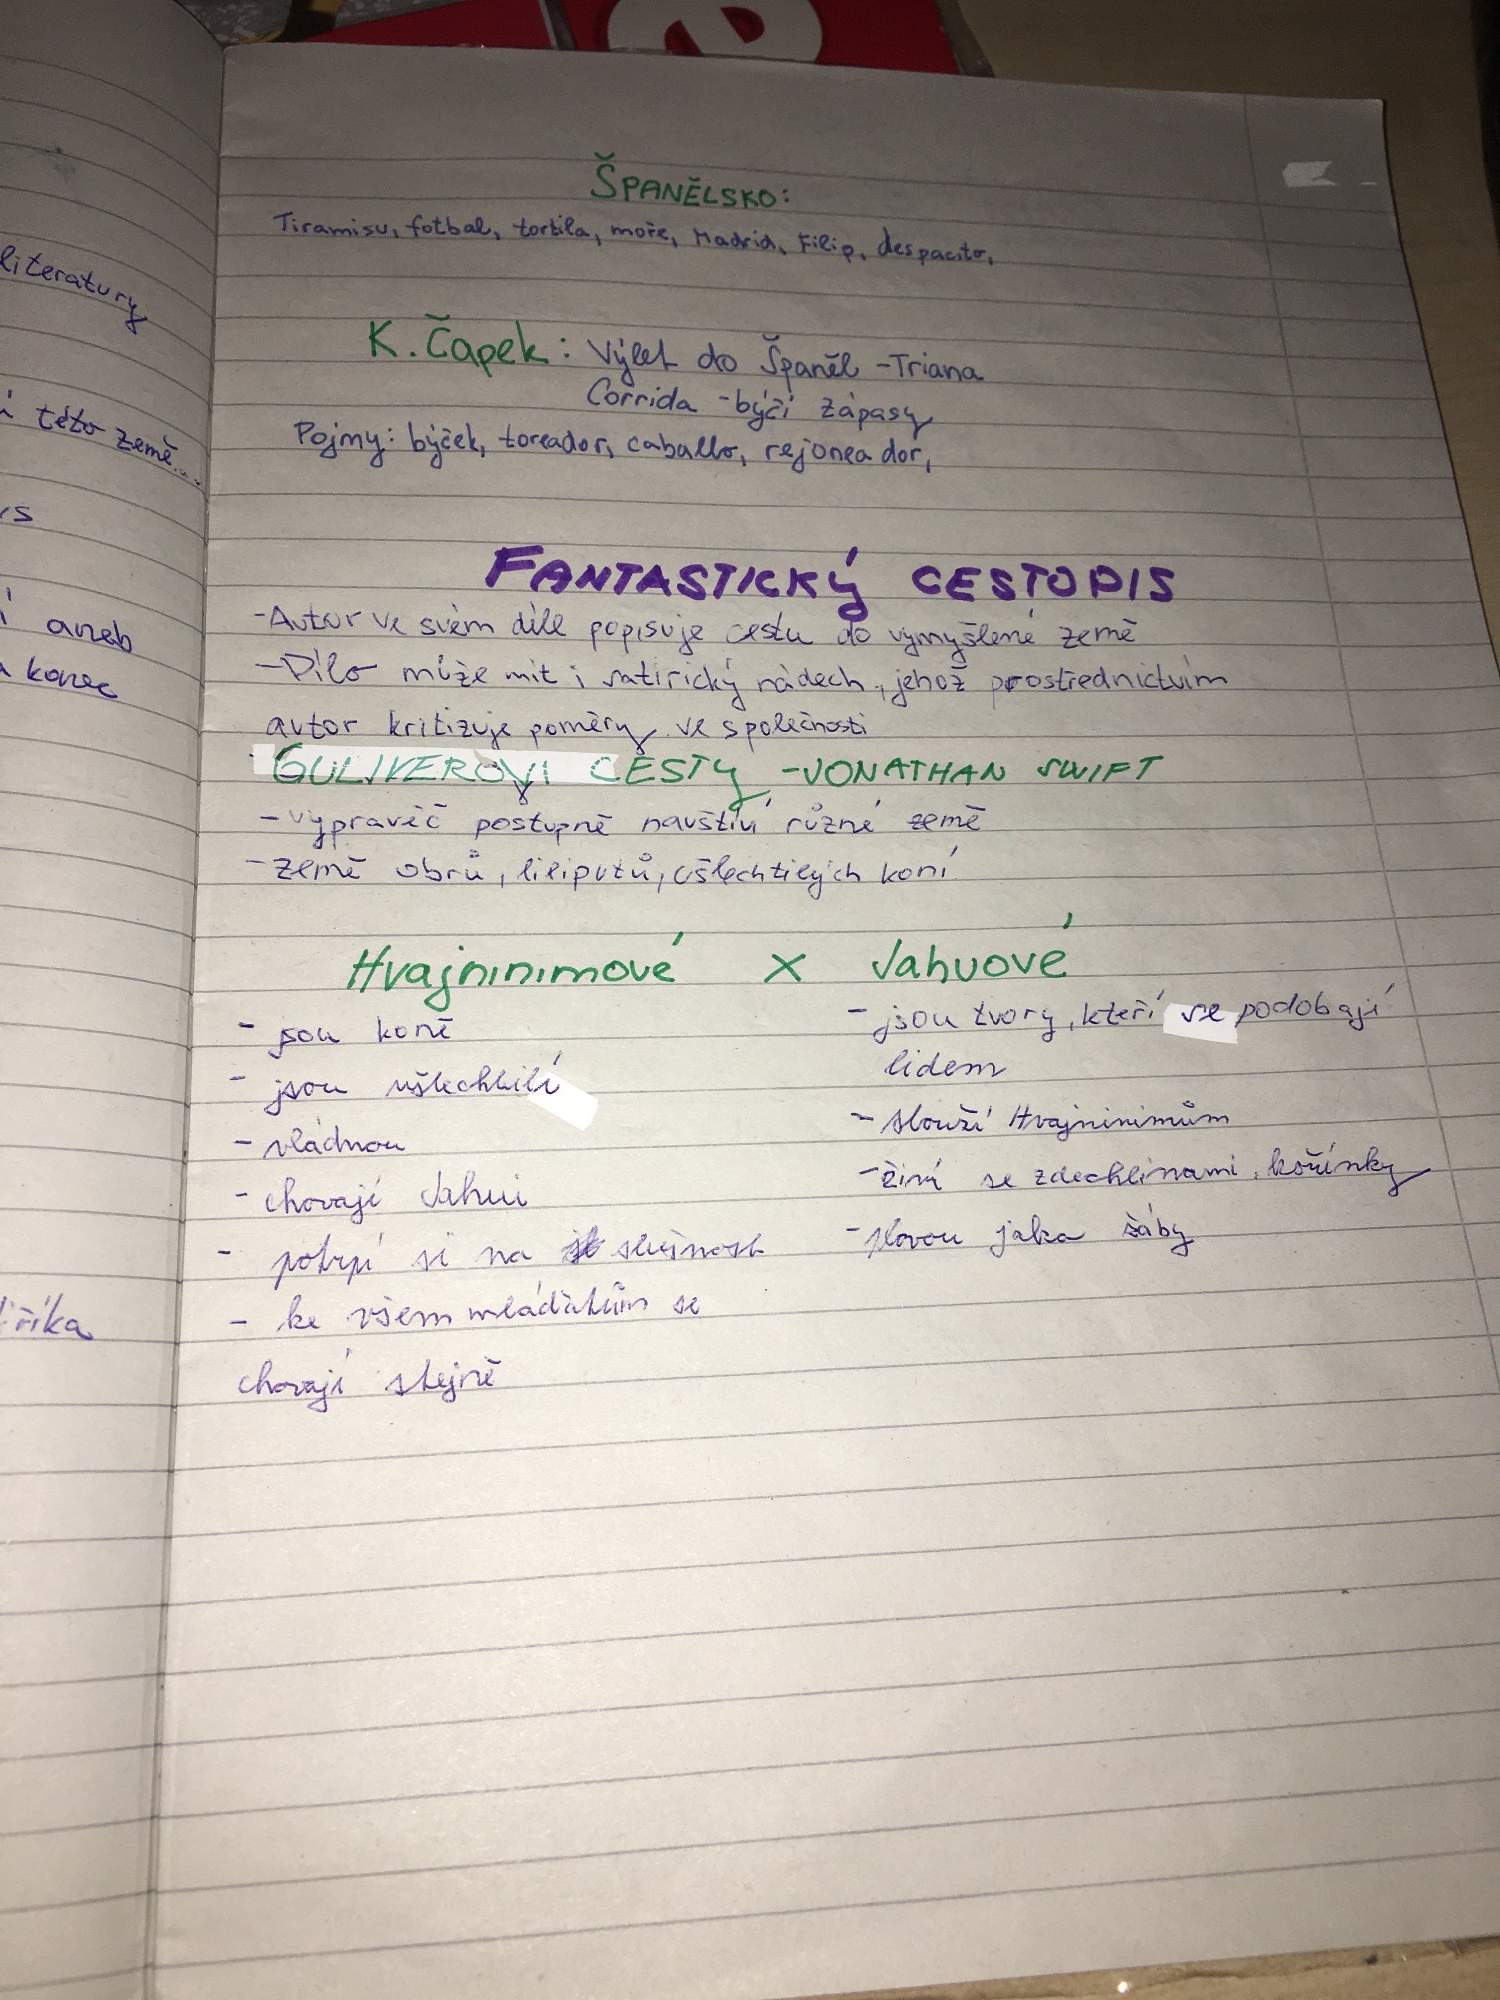 literatury
této země...
aneb
konec
ŠPANĚLSKO:
Tiramisu, fotbal, tortila, moře, Madrid, Filip, despacito,
K. Čapek: Výlet do Španěl - Triana
Corrida - býčí zápasy
Pojmy: býček, toreador, caballo, rejoneador,
FANTASTICKÝ CESTOPIS
- Autor ve svém díle popisuje cestu do vymyšlené země
- Dílo může mít i satirický nádech, jehož prostřednictvím
autor kritizuje poměry ve společnosti
GULIVEROVI CESTY - JONATHAN SWIFT
- vypravěč postupně navštíví různé země
- země obrů, liliputů, ušlechtilých koní
Hvajninimové x Jahuové
- jsou koně
- jsou ušlechtilí
- vládnou
- chovají Jahui
- potrpí si na slušnost
- ke všem mláďatům se
chovají stejně
- jsou tvory, kteří se podobají
lidem
- slouží Hvajninimům
- živí se zdechlinami, kořínky
- plovou jako žáby